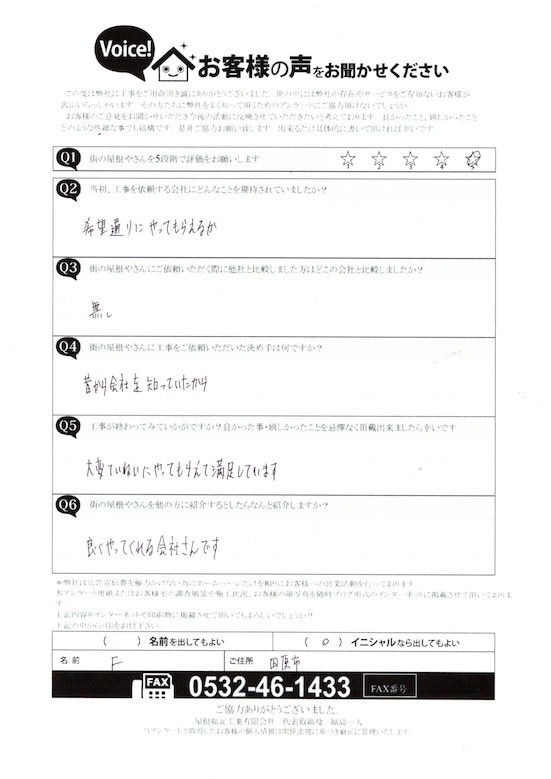 Voice!
お客様の声をお聞かせください
この度は弊社に工事をご用命頂き誠にありがとうございました。世の中には弊社の存在やサービスをご存知ないお客様が
沢山いらっしゃいます。その方たちに弊社をよく知って頂くためのアンケートにご協力頂けないでしょうか。
お客様のご意見をお聞かせいただき今後の活動に反映させていただきたいと考えております。良かったこと、嬉しかったこと
どのような些細な事でも結構です。是非ご協力お願い致します。出来るだけ具体的に書いて頂ければ幸いです。
Q1 街の屋根やさんを5段階で評価をお願いします ☆1 ☆2 ☆3 ☆4 ☆5
Q2 当初、工事を依頼する会社にどんなことを期待されていましたか?
希望通りにやってもらえるか
Q3 街の屋根やさんにご依頼いただく際に他社と比較しました方はどこの会社と比較しましたか?
無し
Q4 街の屋根やさんに工事をご依頼いただいた決め手は何ですか?
昔から会社を知っていたから
Q5 工事が終わってみていかがですか?良かった事・嬉しかったことを忌憚なく頂戴出来ましたら幸いです
大変ていねいにやってもらえて満足しています
Q6 街の屋根やさんを他の方に紹介するとしたらなんと紹介しますか?
良くやってくれる会社さんです
※弊社は広告宣伝費を極力かけない為にホームページだけを頼りにお客様への営業活動を行っております。
本アンケート用紙またはお客様宅の調査風景や施工状況、お客様の顔写真を随時ブログ形式のインターネットに掲載させて頂いておりま
す。
上記内容をインターネットや印刷物に掲載させて頂いてもよろしいでしょうか?
下記の中から○印をお付け下さい。
( ) 名前を出してもよい ( ○ ) イニシャルなら出してもよい
名前 F ご住所 田原市
FAX 0532-46-1433 FAX番号
ご協力ありがとうございました。
屋根福瓦工業有限会社 代表取締役 福島一人
当アンケートで取得したお客様の個人情報は関係法規に基づき厳正に管理いたします。